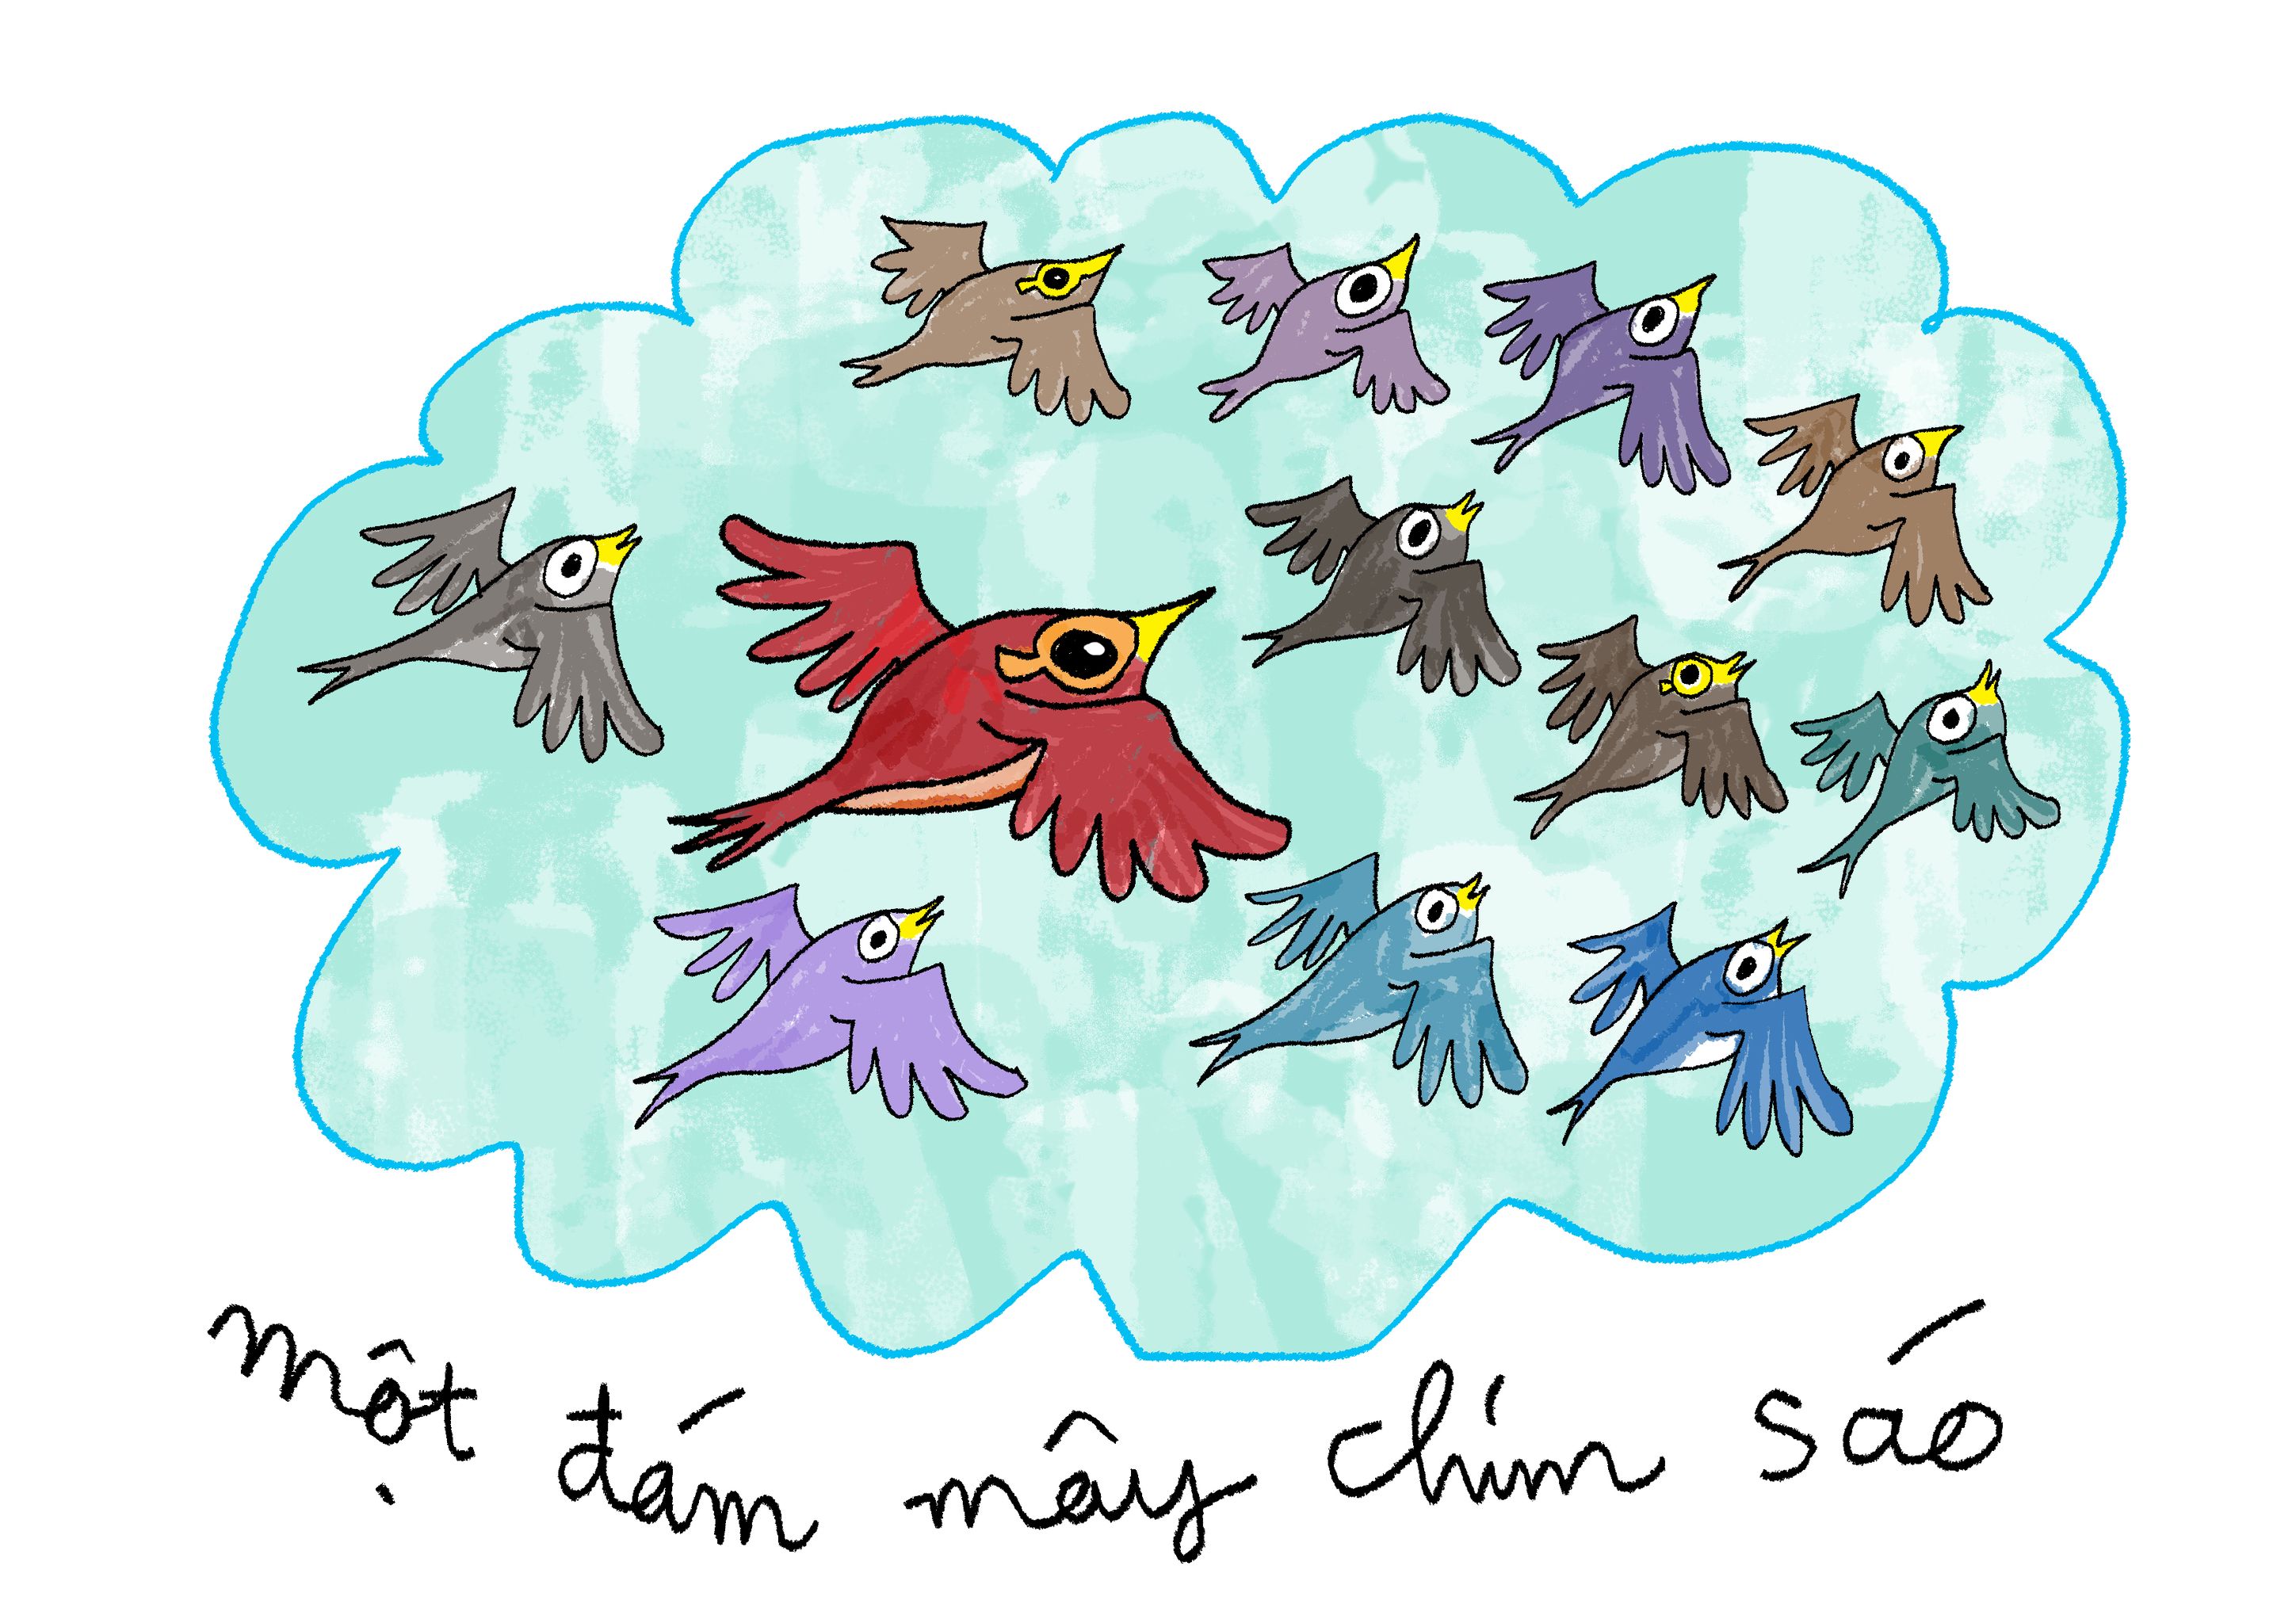 một đám mây chim sáo